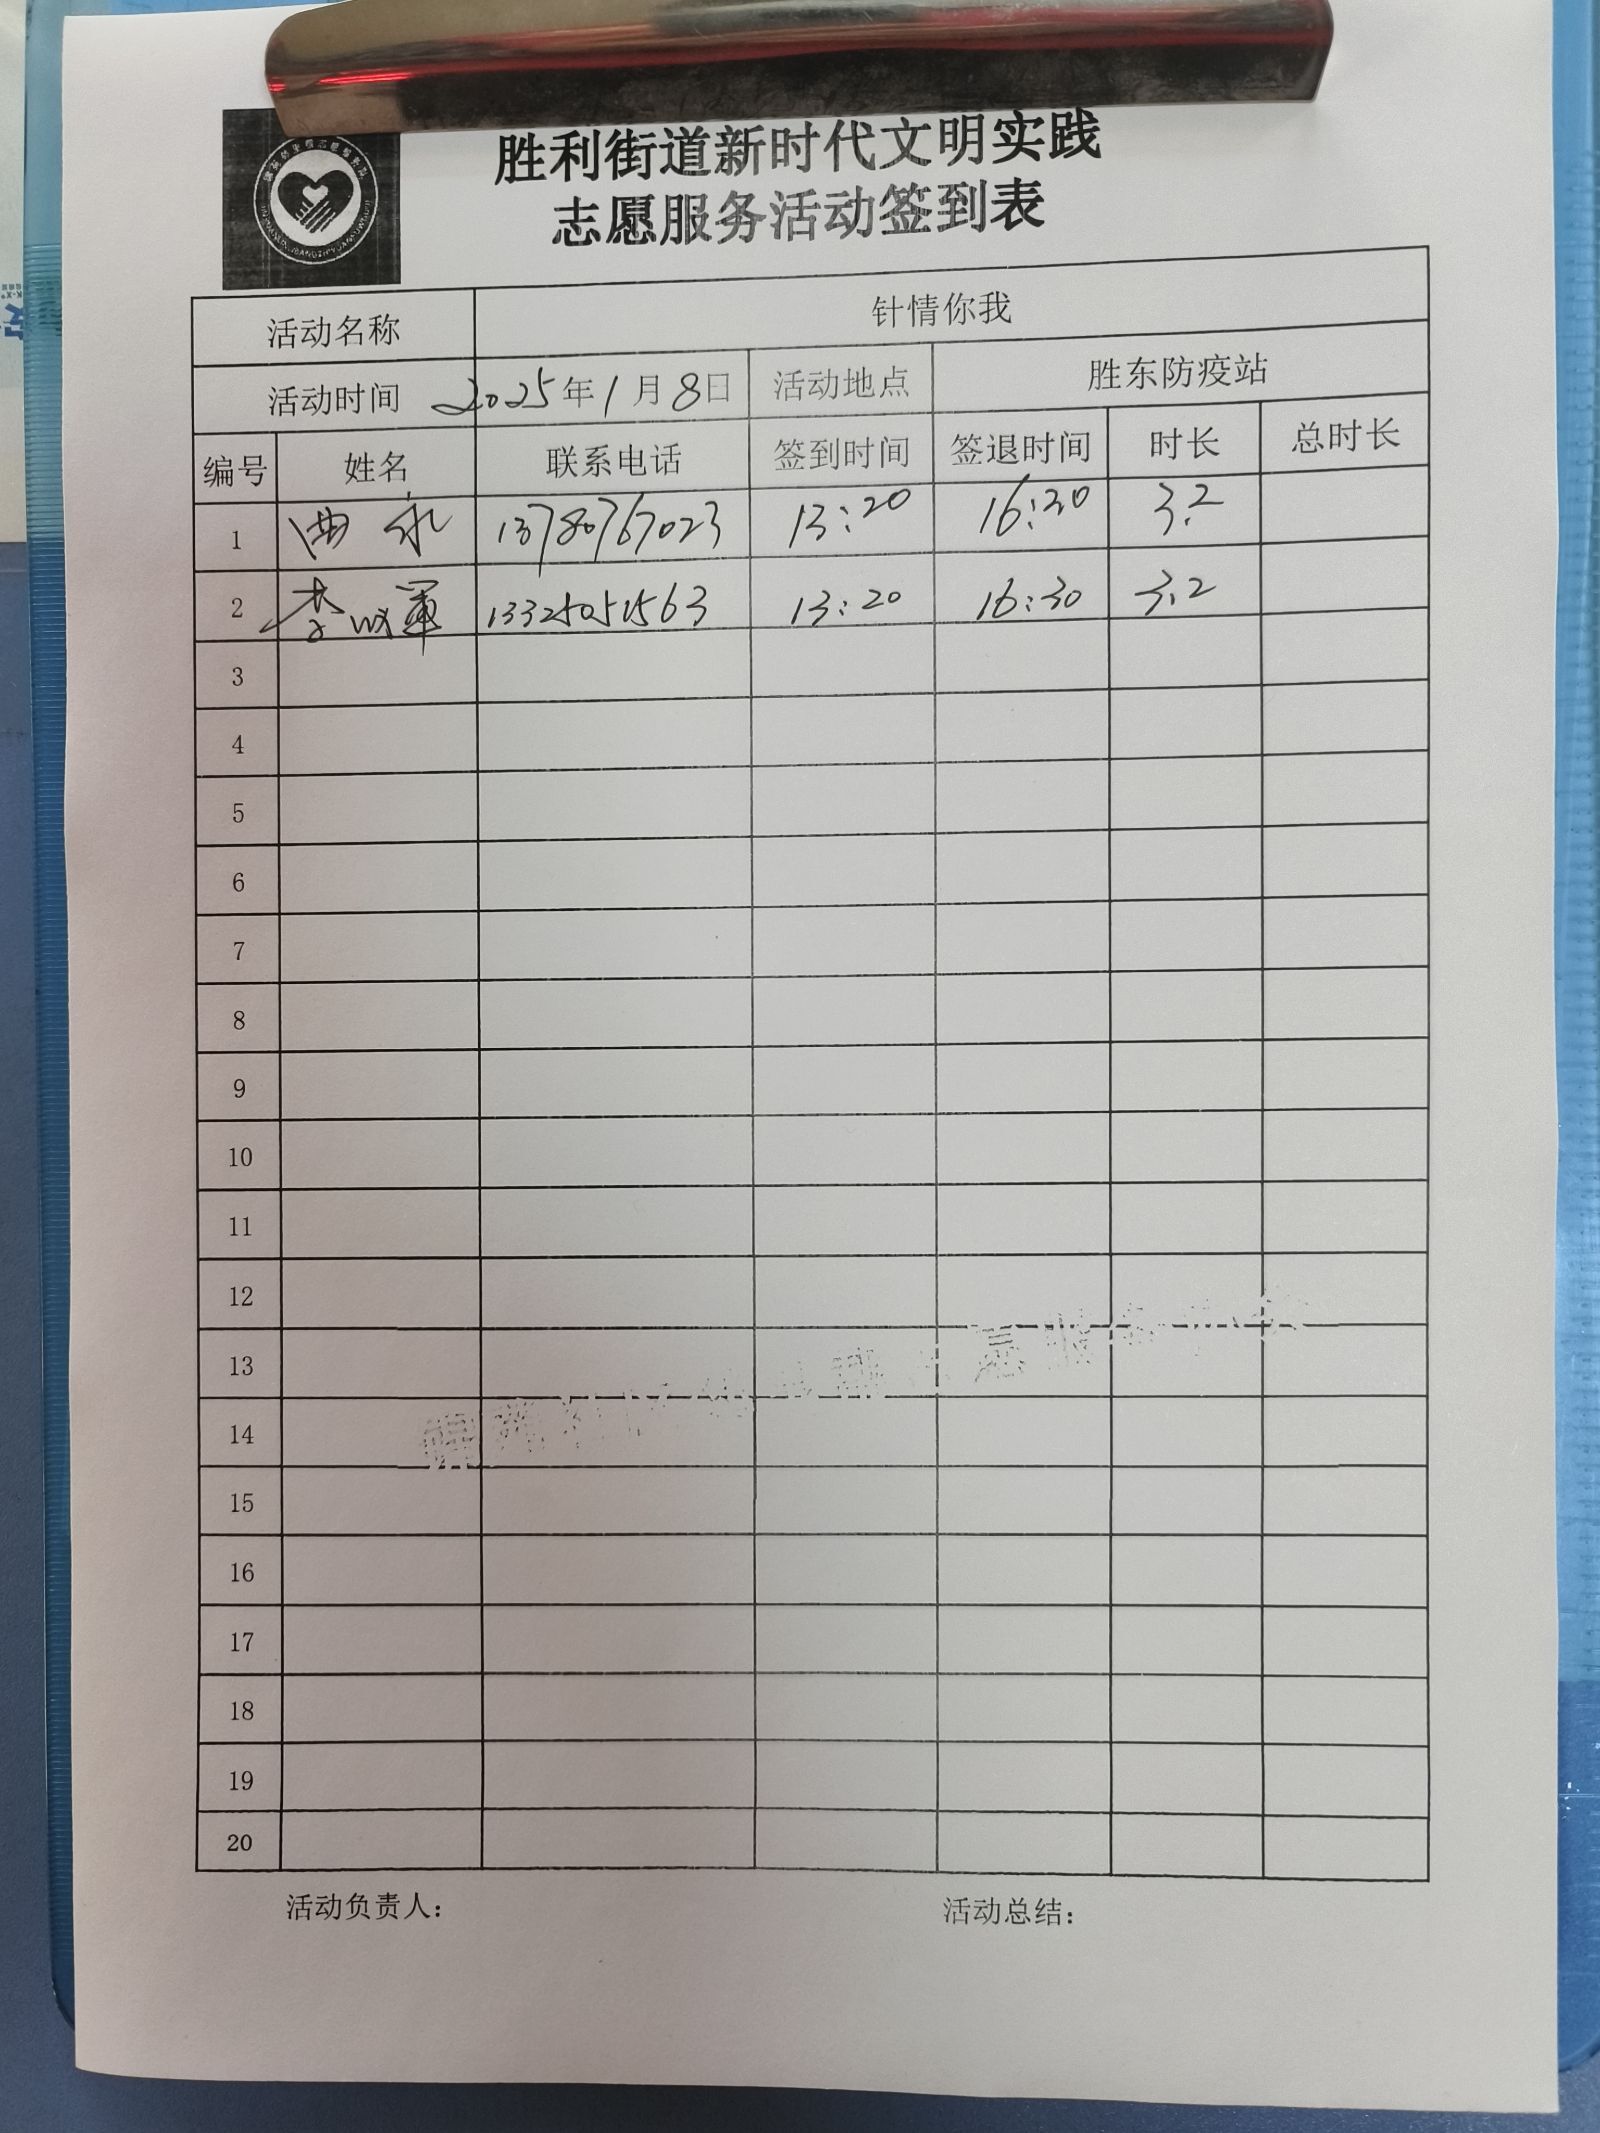 胜利街道新时代文明实践
志愿服务活动签到表
活动名称 针情你我
活动时间 2025年1月8日 活动地点 胜东防疫站
编号 姓名 联系电话 签到时间 签退时间 时长 总时长
1 曲永 13780767023 13:20 16:30 3.2
2 李以军 13325051563 13:20 16:30 3.2
3
4
5
6
7
8
9
10
11
12
13
14
15
16
17
18
19
20
活动负责人： 活动总结：